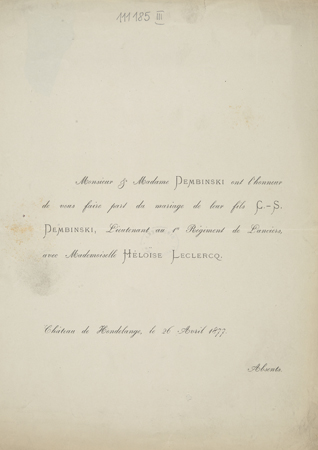 111185 III
Monsieur & Madame DEMBINSKI ont l'honneur
de vous faire part du mariage de leur fils C.-S.
DEMBINSKI, Lieutenant au 1er Régiment de Lanciers,
avec Mademoiselle HÉLOÏSE LECLERCQ.
Château de Hondelange, le 26 Avril 1877.
Absents.